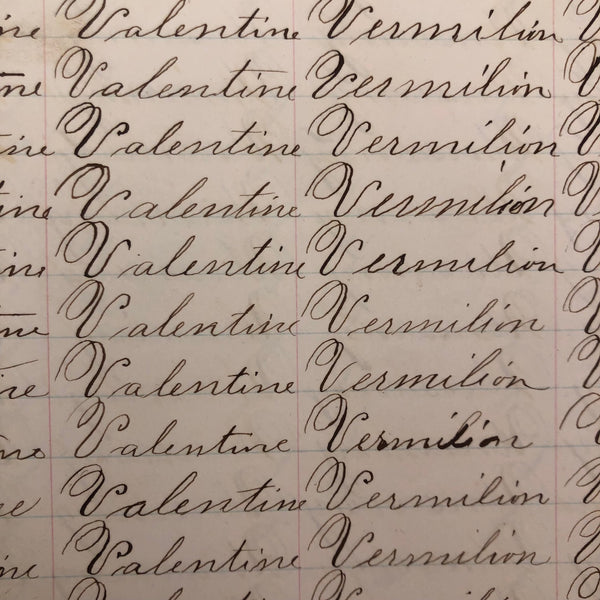 Valentine Vermilion
Valentine Vermilion
Valentine Vermilion
Valentine Vermilion
Valentine Vermilion
Valentine Vermilion
Valentine Vermilion
Valentine Vermilion
Valentine Vermilion
Valentine Vermilion